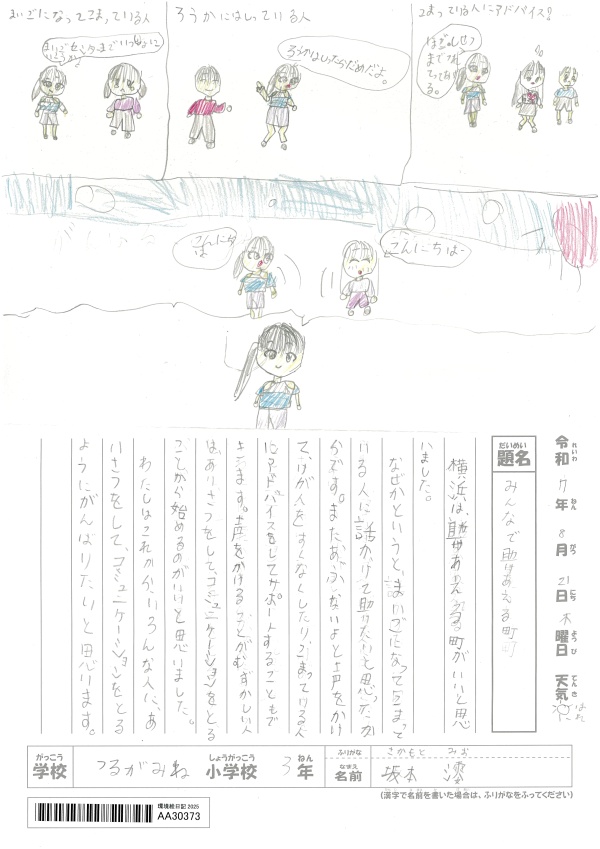 まいごになってこまっている人
まいご
センターまでいっしょに
いこうか
ろうかにはしっている人
ろうかはしったらだめだよ。
こまっている人にアドバイス!
まで
てってあげ
る。
こんにち
は
こんにちは
令和7年8月21日木曜日 天気 はれ
れいわ ねん がつ にち ようび てんき
だいめい
題名
みんなで助けあえる町
横浜は、助けあえる町がいいと思
いました。
なぜかというと、まいごになってこまって
いる人に話かけて助けたいと思ったか
らです。またあぶないよと声をかけ
て、けが人をすくなくしたり、こまっている人
にアドバイスをしてサポートすることもで
きます。声をかけることがむずかしい人
は、あいさつをして、コミュニケーションをとる
ことから始めるのがいいと思いました。
わたしはこれから、いろんな人に、あ
いさつをして、コミュニケーションをとる
ようにがんばりたいと思います。
がっこう しょうがっこう ねん
学校 つるがみね 小学校 3年
ふりがな さかもと みお
なまえ
名前 坂本 澪
(漢字で名前を書いた場合は、ふりがなをふってください)
環境絵日記 2025
AA30373